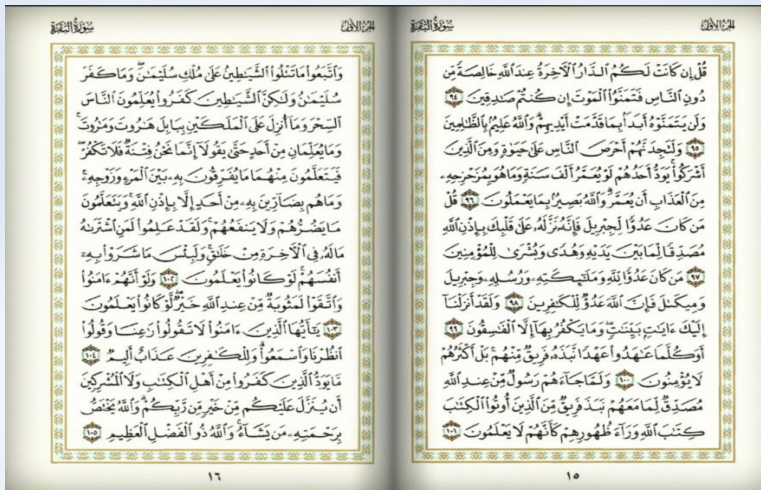 الجزء الأول
سورة البقرة
قُلْ إِن كَانَتْ لَكُمُ الدَّارُ الْآخِرَةُ عِندَ اللَّهِ خَالِصَةً مِّن
دُونِ النَّاسِ فَتَمَنَّوُا الْمَوْتَ إِن كُنتُمْ صَادِقِينَ ٩٤
وَلَن يَتَمَنَّوْهُ أَبَدًا بِمَا قَدَّمَتْ أَيْدِيهِمْ وَاللَّهُ عَلِيمٌ بِالظَّالِمِينَ
٩٥ وَلَتَجِدَنَّهُمْ أَحْرَصَ النَّاسِ عَلَىٰ حَيَوٰةٍ وَمِنَ الَّذِينَ
أَشْرَكُوا يَوَدُّ أَحَدُهُمْ لَوْ يُعَمَّرُ أَلْفَ سَنَةٍ وَمَا هُوَ بِمُزَحْزِحِهِ
مِنَ الْعَذَابِ أَن يُعَمَّرَ وَاللَّهُ بَصِيرٌ بِمَا يَعْمَلُونَ ٩٦ قُلْ
مَن كَانَ عَدُوًّا لِّجِبْرِيلَ فَإِنَّهُ نَزَّلَهُ عَلَىٰ قَلْبِكَ بِإِذْنِ اللَّهِ
مُصَدِّقًا لِّمَا بَيْنَ يَدَيْهِ وَهُدًى وَبُشْرَىٰ لِلْمُؤْمِنِينَ
٩٧ مَن كَانَ عَدُوًّا لِّلَّهِ وَمَلَٰئِكَتِهِ وَرُسُلِهِ وَجِبْرِيلَ
وَمِيكَىٰلَ فَإِنَّ اللَّهَ عَدُوٌّ لِّلْكَٰفِرِينَ ٩٨ وَلَقَدْ أَنزَلْنَا
إِلَيْكَ ءَايَٰتٍ بَيِّنَٰتٍ وَمَا يَكْفُرُ بِهَا إِلَّا الْفَٰسِقُونَ ٩٩
أَوَكُلَّمَا عَٰهَدُوا عَهْدًا نَّبَذَهُ فَرِيقٌ مِّنْهُم بَلْ أَكْثَرُهُمْ
لَا يُؤْمِنُونَ ١٠٠ وَلَمَّا جَاءَهُمْ رَسُولٌ مِّنْ عِندِ اللَّهِ
مُصَدِّقٌ لِّمَا مَعَهُمْ نَبَذَ فَرِيقٌ مِّنَ الَّذِينَ أُوتُوا الْكِتَٰبَ
كِتَٰبَ اللَّهِ وَرَاءَ ظُهُورِهِمْ كَأَنَّهُمْ لَا يَعْلَمُونَ ١٠١
١٥
الجزء الأول
سورة البقرة
وَاتَّبَعُوا مَا تَتْلُوا الشَّيَٰطِينُ عَلَىٰ مُلْكِ سُلَيْمَٰنَ وَمَا كَفَرَ
سُلَيْمَٰنُ وَلَٰكِنَّ الشَّيَٰطِينَ كَفَرُوا يُعَلِّمُونَ النَّاسَ
السِّحْرَ وَمَا أُنزِلَ عَلَى الْمَلَكَيْنِ بِبَابِلَ هَٰرُوتَ وَمَٰرُوتَ
وَمَا يُعَلِّمَانِ مِنْ أَحَدٍ حَتَّىٰ يَقُولَا إِنَّمَا نَحْنُ فِتْنَةٌ فَلَا تَكْفُرْ
فَيَتَعَلَّمُونَ مِنْهُمَا مَا يُفَرِّقُونَ بِهِ بَيْنَ الْمَرْءِ وَزَوْجِهِ
وَمَا هُم بِضَارِّينَ بِهِ مِنْ أَحَدٍ إِلَّا بِإِذْنِ اللَّهِ وَيَتَعَلَّمُونَ
مَا يَضُرُّهُمْ وَلَا يَنفَعُهُمْ وَلَقَدْ عَلِمُوا لَمَنِ اشْتَرَىٰهُ
مَا لَهُ فِي الْآخِرَةِ مِنْ خَلَٰقٍ وَلَبِئْسَ مَا شَرَوْا بِهِ
أَنفُسَهُمْ لَوْ كَانُوا يَعْلَمُونَ ١٠٢ وَلَوْ أَنَّهُمْ ءَامَنُوا
وَاتَّقَوْا لَمَثُوبَةٌ مِّنْ عِندِ اللَّهِ خَيْرٌ لَّوْ كَانُوا يَعْلَمُونَ
١٠٣ يَٰأَيُّهَا الَّذِينَ ءَامَنُوا لَا تَقُولُوا رَٰعِنَا وَقُولُوا
انظُرْنَا وَاسْمَعُوا وَلِلْكَٰفِرِينَ عَذَابٌ أَلِيمٌ ١٠٤
مَّا يَوَدُّ الَّذِينَ كَفَرُوا مِنْ أَهْلِ الْكِتَٰبِ وَلَا الْمُشْرِكِينَ
أَن يُنَزَّلَ عَلَيْكُم مِّنْ خَيْرٍ مِّن رَّبِّكُمْ وَاللَّهُ يَخْتَصُّ
بِرَحْمَتِهِ مَن يَشَاءُ وَاللَّهُ ذُو الْفَضْلِ الْعَظِيمِ ١٠٥
١٦